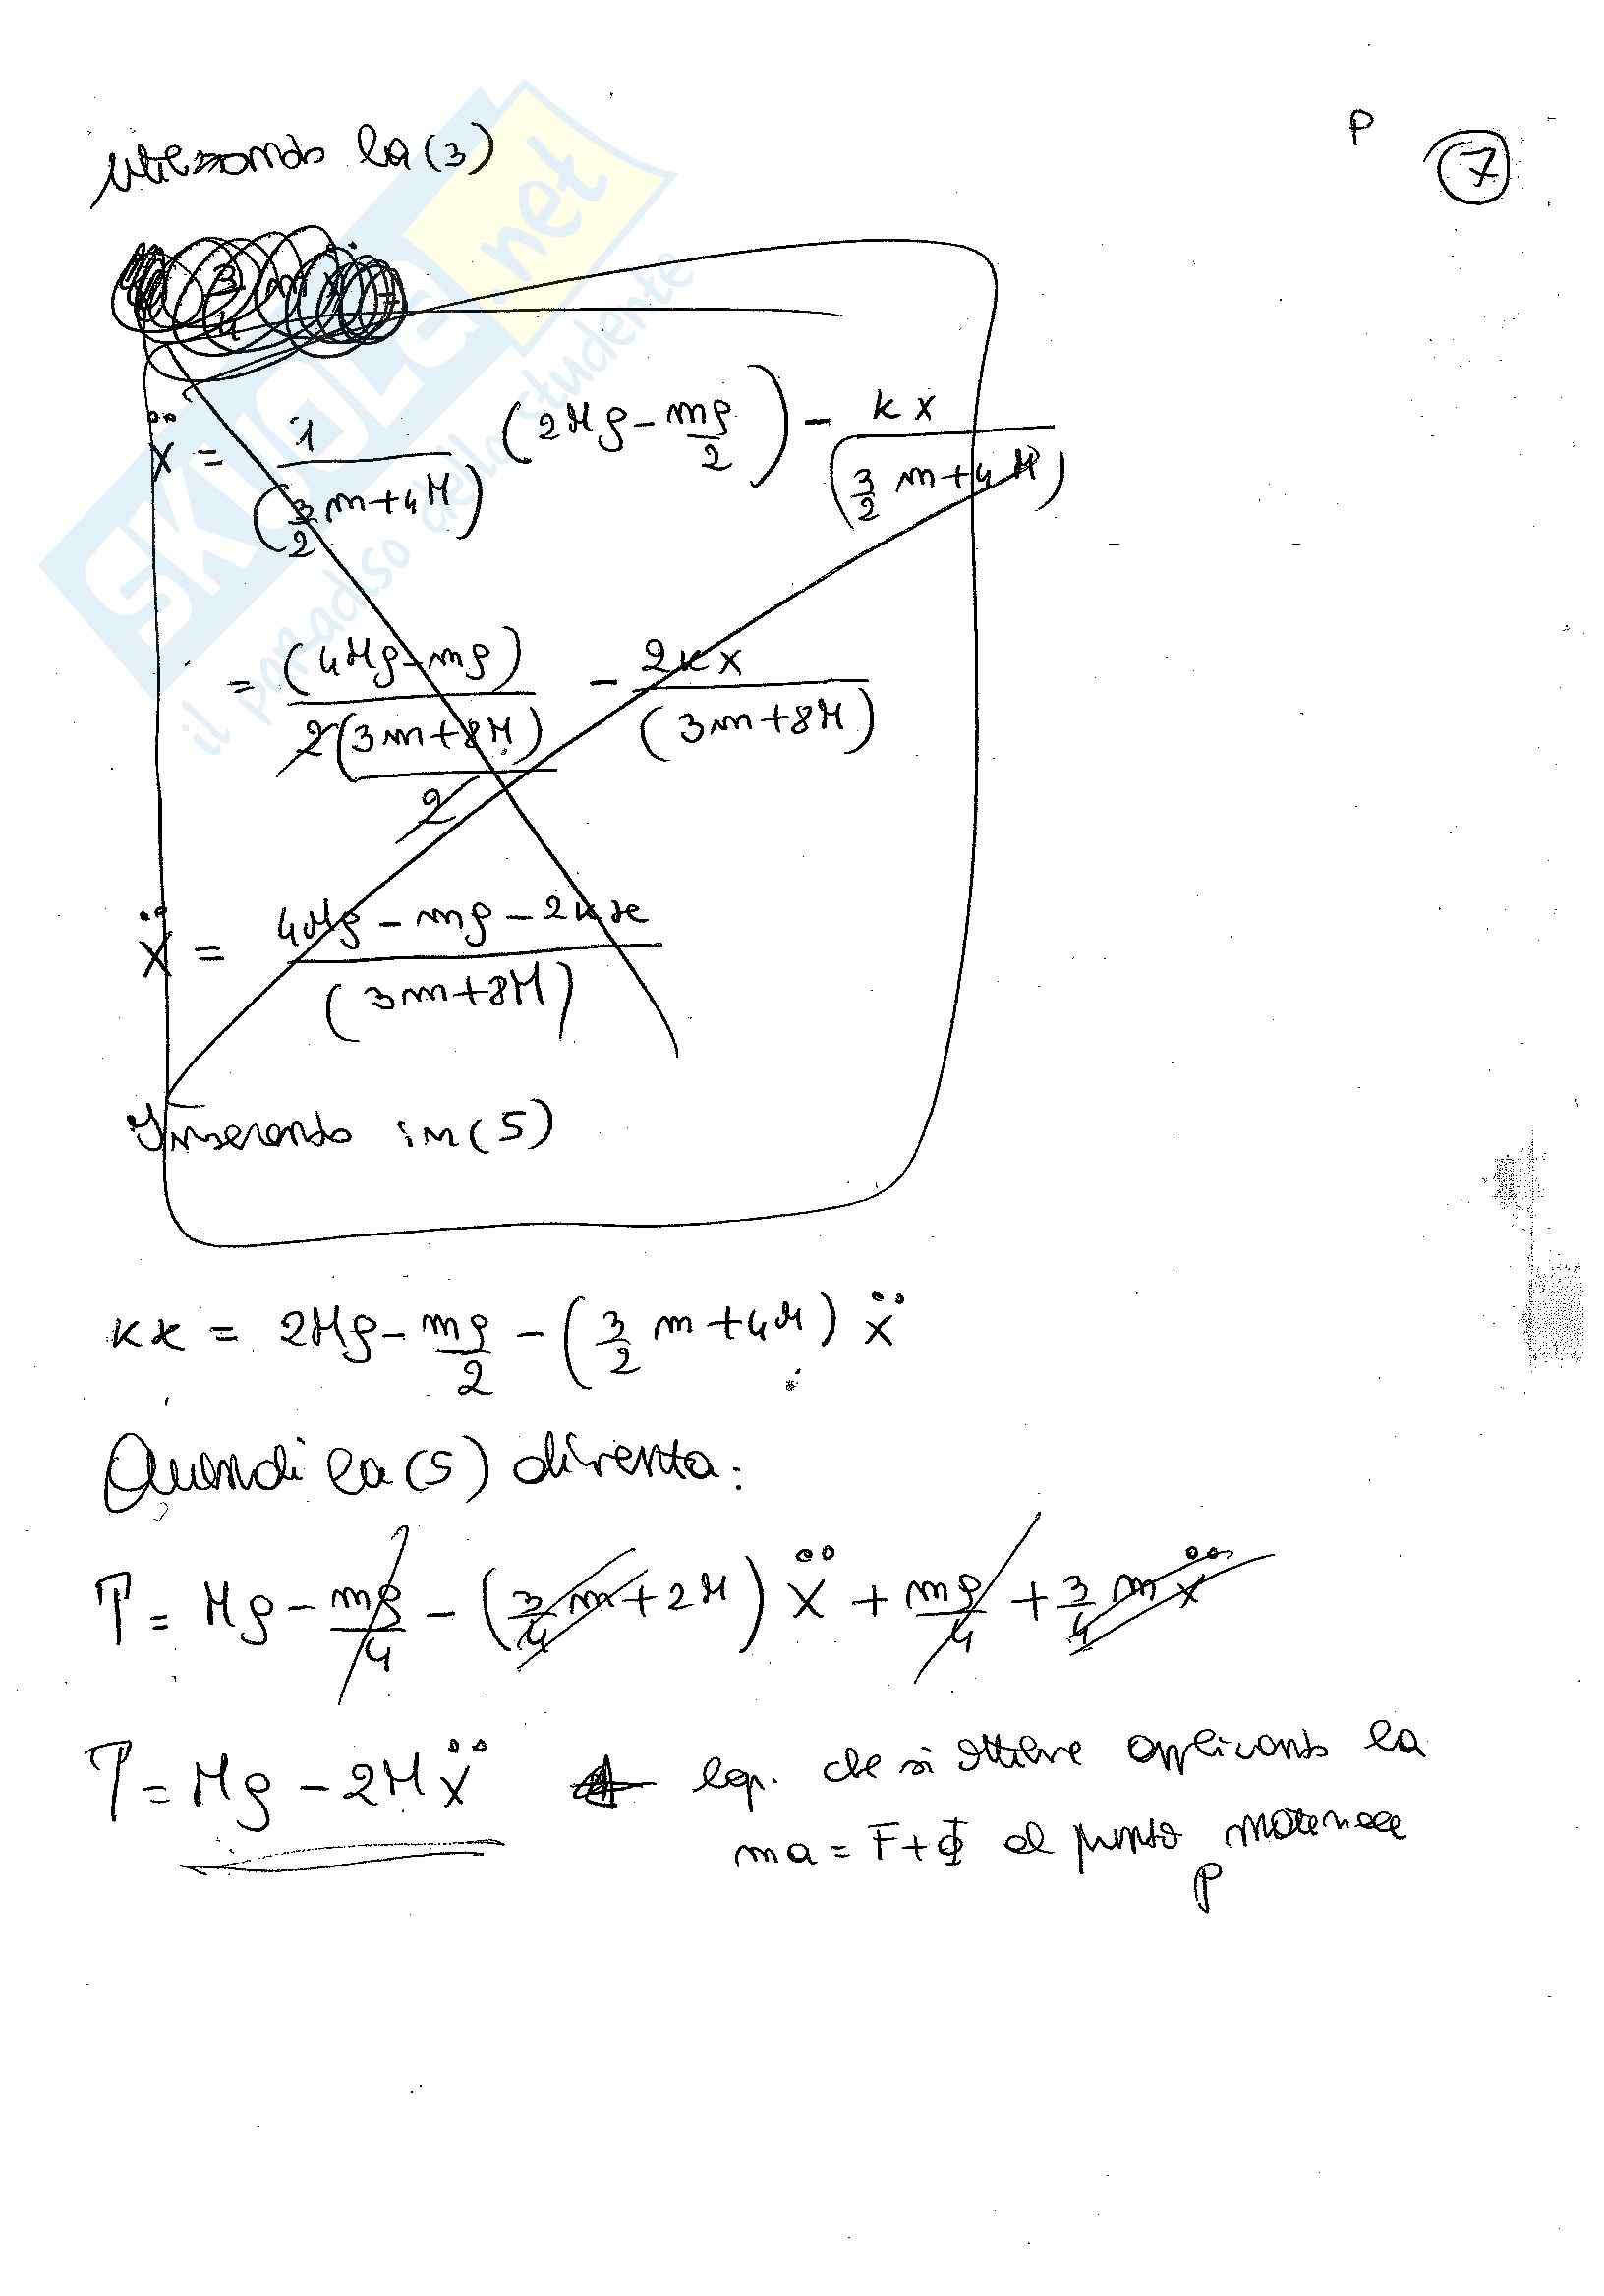 Utilizzando la (3)
P
7
ẍ = 1/(3/2 m+4M) (2Mg - mg/2) - kx/(3/2 m+4M)
= (4Mg-mg)/(2(3m+8M)/2) - 2kx/(3m+8M)
ẍ = 4Mg - mg - 2kx/(3m+8M)
Inserendo in (5)
kx = 2Mg - mg/2 - (3/2 m+4M) ẍ
Quindi la (5) diventa:
T = Mg - mg/4 - (3/4 m+2M) ẍ + mg/4 + 3/4 m ẍ
T = Mg - 2Mẍ eq. che si ottiene applicando la
ma = F+Φ al punto materiale
P
SKUOLA.net
il paradiso dello studente